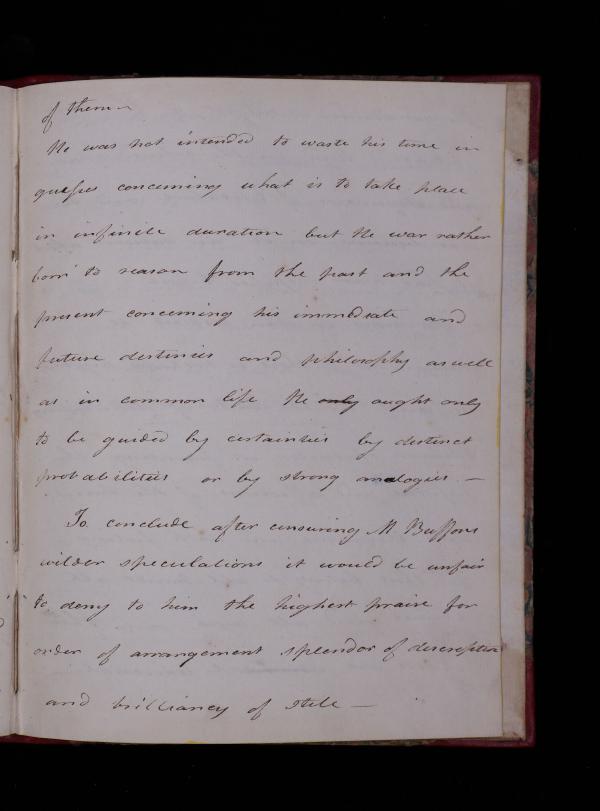 of them –
He was not intended to waste his time in
guesses concerning what is to take place
in infinite duration but He was rather
born to reason from the past and the
present concerning his immediate and
future destinies and philosophy as well
as in common life He only ought only
to be guided by certainties by distinct
probabilities or by strong analogies –
To conclude after censuring M Buffons
wilder speculations it would be unfair
to deny to him the highest praise for
order of arrangement splendor of discreption
and brilliancy of stile –